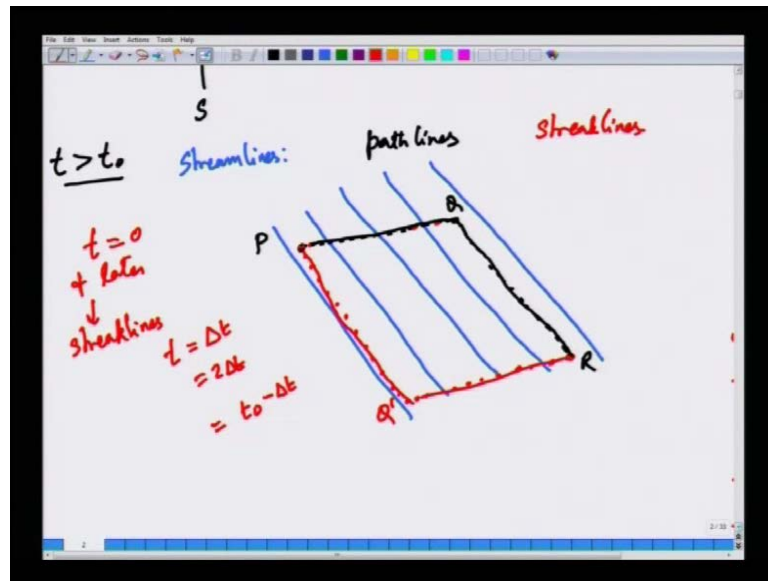 File Edit View Insert Actions Tools Help
S
t > t₀
Streamlines:
path lines
Streaklines
t = 0
+ later
↓
streaklines
t = Δt
= 2Δt
= t₀ - Δt
P
Q
R
Q'
2 / 33
2